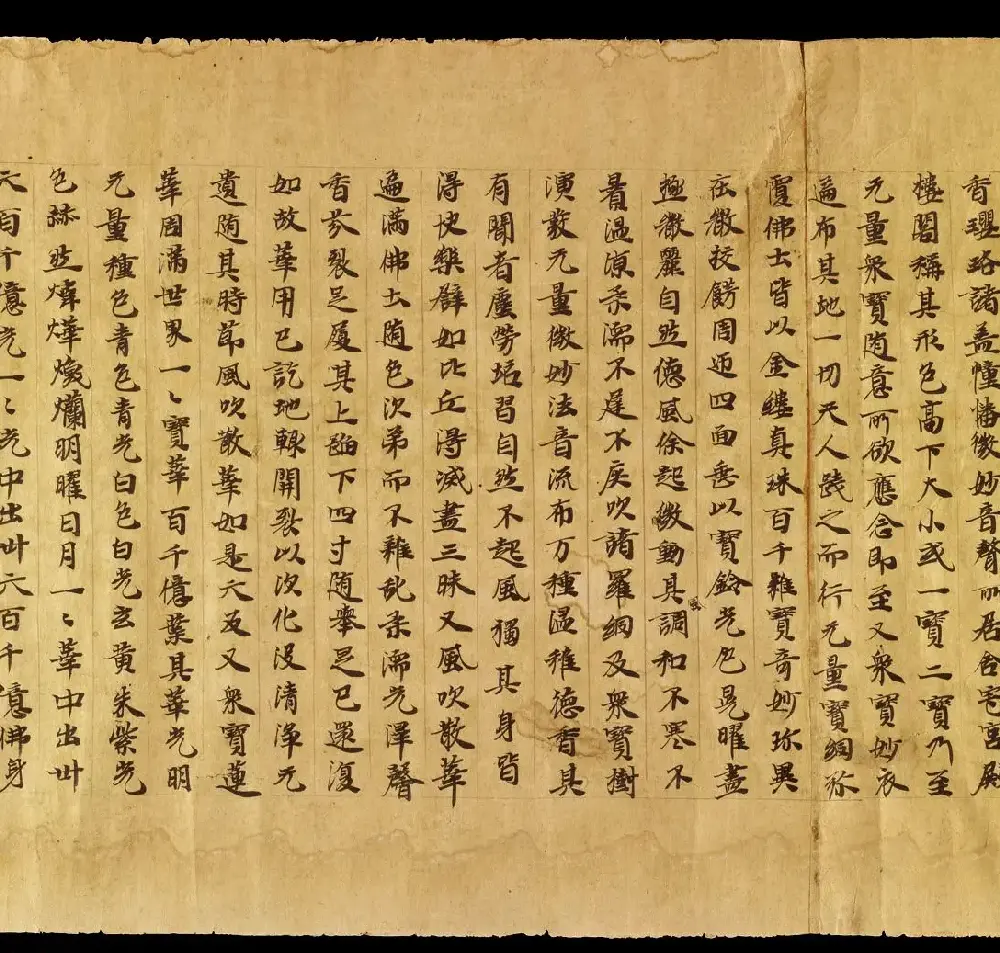 香瓔珞諸盖幢幡微妙音聲所居舍宅宮殿
樓閣稱其形色高下大小或一寶二寶乃至
无量衆寶随意所欲應念即至又衆寶妙衣
遍布其地一切天人踐之而行无量寶網弥
覆佛土皆以金縷真珠百千雜寶奇妙珎異
庄嚴挍餝周迊四面垂以寶鈴光色晃曜盡
極嚴麗自然德風徐起微動其調和不寒不
暑温涼柔濡不遲不疾吹諸羅網及衆寶樹
演發无量微妙法音流布万種温雅德香其
有聞者塵勞垢習自然不起風獨其身皆
得快樂譬如比丘得滅盡三昧又風吹散華
遍滿佛土随色次第而不雜乱柔濡光澤馨
香芬裂足履其上蹈下四寸随舉足已還復
如故華用已訖地輙開裂以次化没清淨无
遺随其時節風吹散華如是六反又衆寶蓮
華周滿世界一〻寶華百千億葉其華光明
无量種色青色青光白色白光玄黄朱紫光
色赫然煒燁煥爛明曜日月一〻華中出卅
六百千億光一〻光中出卅六百千億佛身